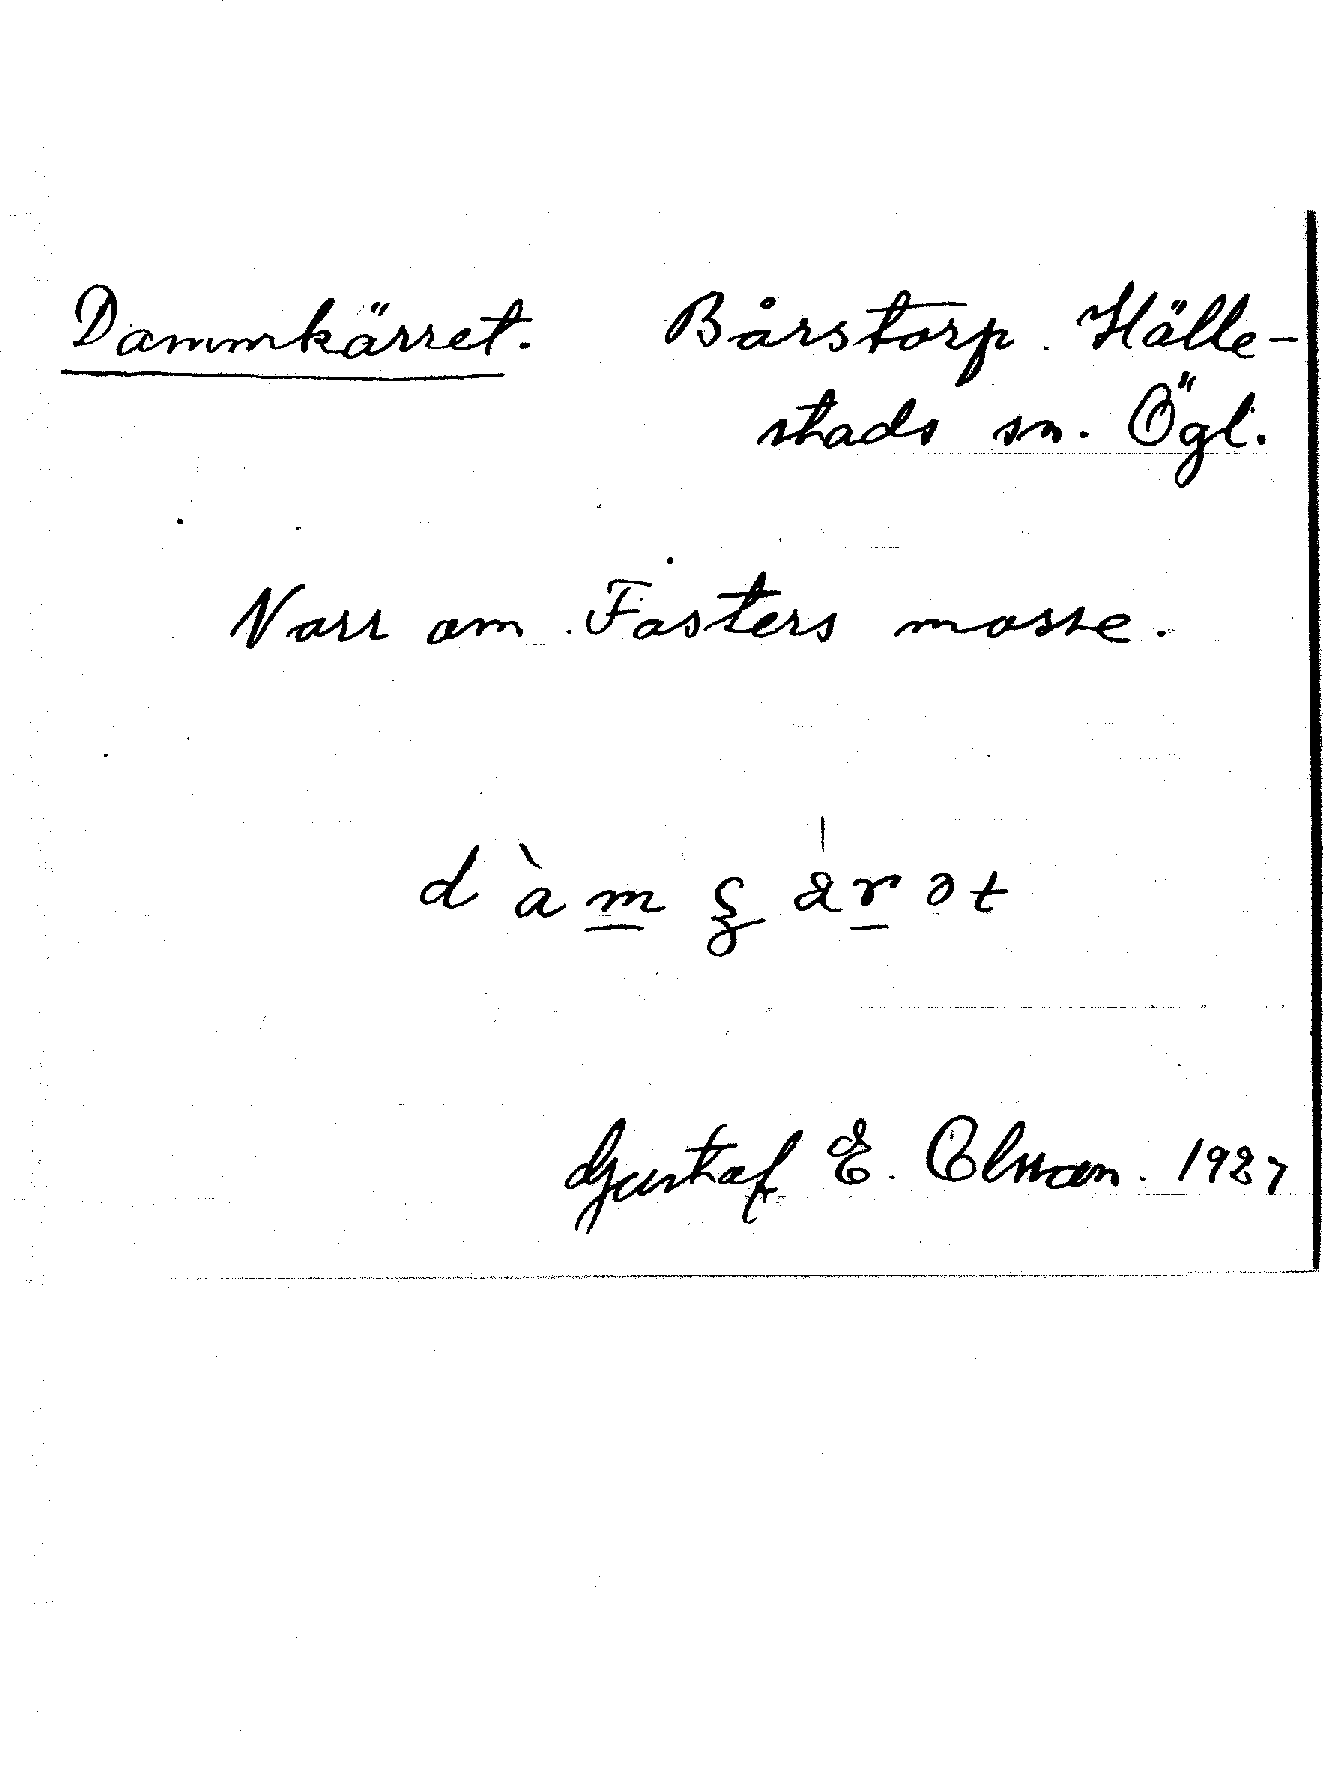 Dammkärret. Bårstorp. Hälle-
stads sn. Ögl.
Norr om Fosters mosse.
Gustaf E. 1927